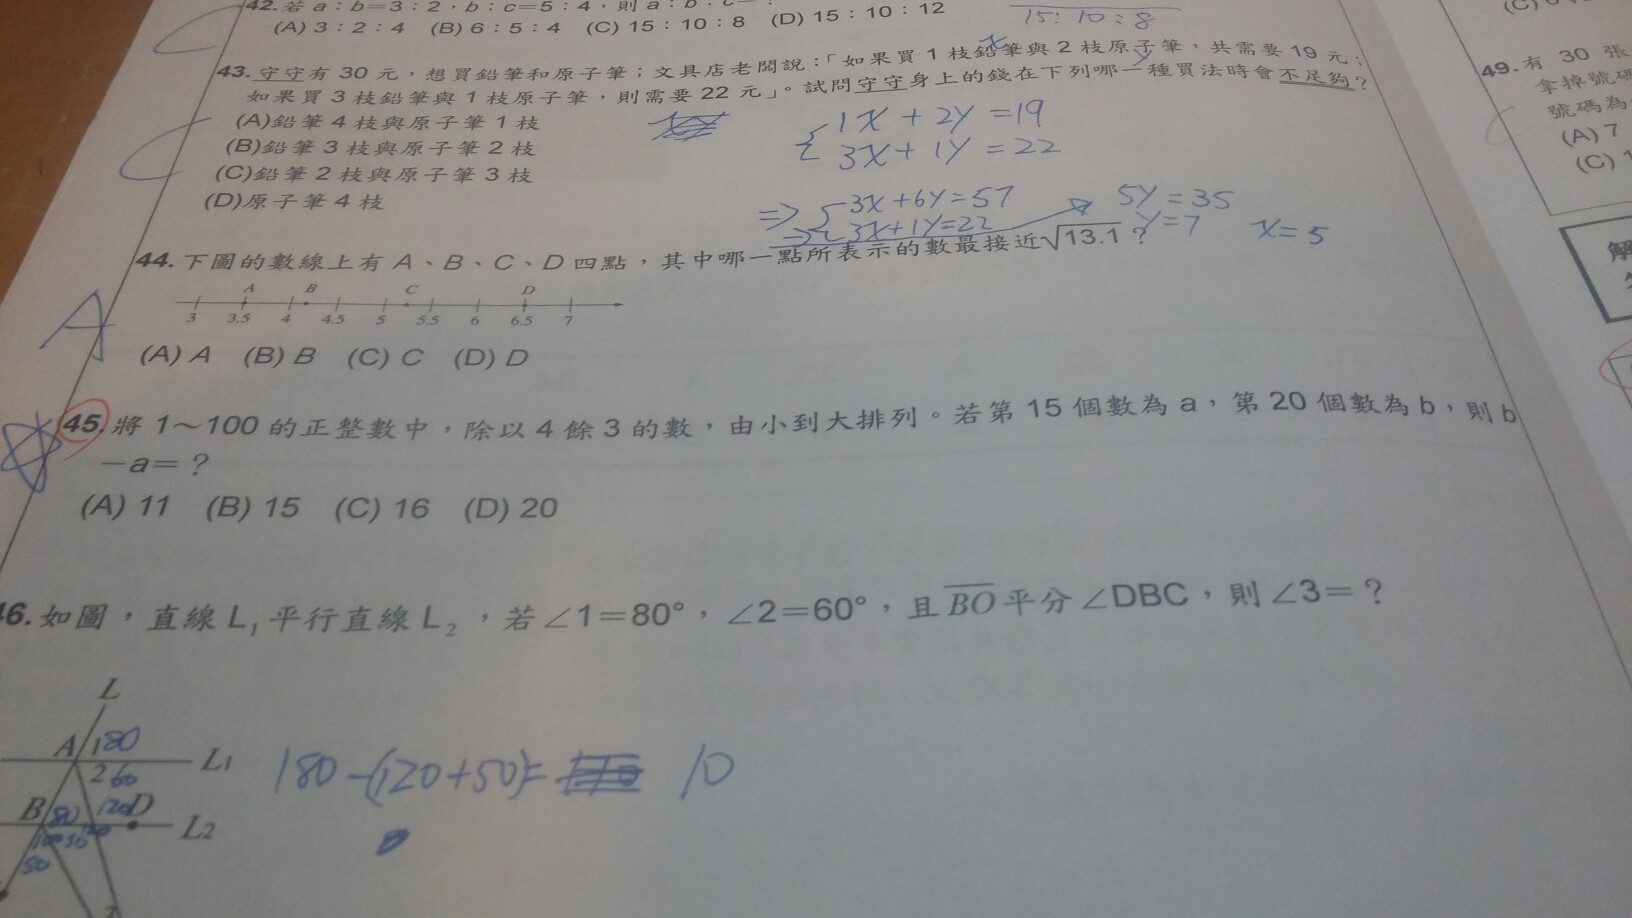 42.若 a：b=3：2，b：c=5：4，則 a：b：c=？
(A) 3：2：4 (B) 6：5：4 (C) 15：10：8 (D) 15：10：12
15：10：8
C
43.守守有 30 元，想買鉛筆和原子筆；文具店老闆說：「如果買 1 枝鉛筆與 2 枝原子筆，共需要 19 元；
x
y
如果買 3 枝鉛筆與 1 枝原子筆，則需要 22 元」。試問守守身上的錢在下列哪一種買法時會不足夠？
(A)鉛筆 4 枝與原子筆 1 枝
(B)鉛筆 3 枝與原子筆 2 枝
(C)鉛筆 2 枝與原子筆 3 枝
(D)原子筆 4 枝
C
1x + 2y = 19
3x + 1y = 22
⇒ 3x+6y=57
⇒ 3x+1y=22
5y = 35
y=7
x=5
44.下圖的數線上有 A、B、C、D 四點，其中哪一點所表示的數最接近√13.1？
A B C D
3 3.5 4 4.5 5 5.5 6 6.5 7
(A) A (B) B (C) C (D) D
A
45.將 1～100 的正整數中，除以 4 餘 3 的數，由小到大排列。若第 15 個數為 a，第 20 個數為 b，則 b
－a=？
(A) 11 (B) 15 (C) 16 (D) 20
46.如圖，直線 L1 平行直線 L2，若∠1=80°，∠2=60°，且 BO 平分∠DBC，則∠3=？
L
A 1 80 L1
2 60
B 80 120 D L2
50
50
180-(120+50)= 10
49.有 30 張
拿掉號碼
號碼為
(A) 7
(C) 1
解